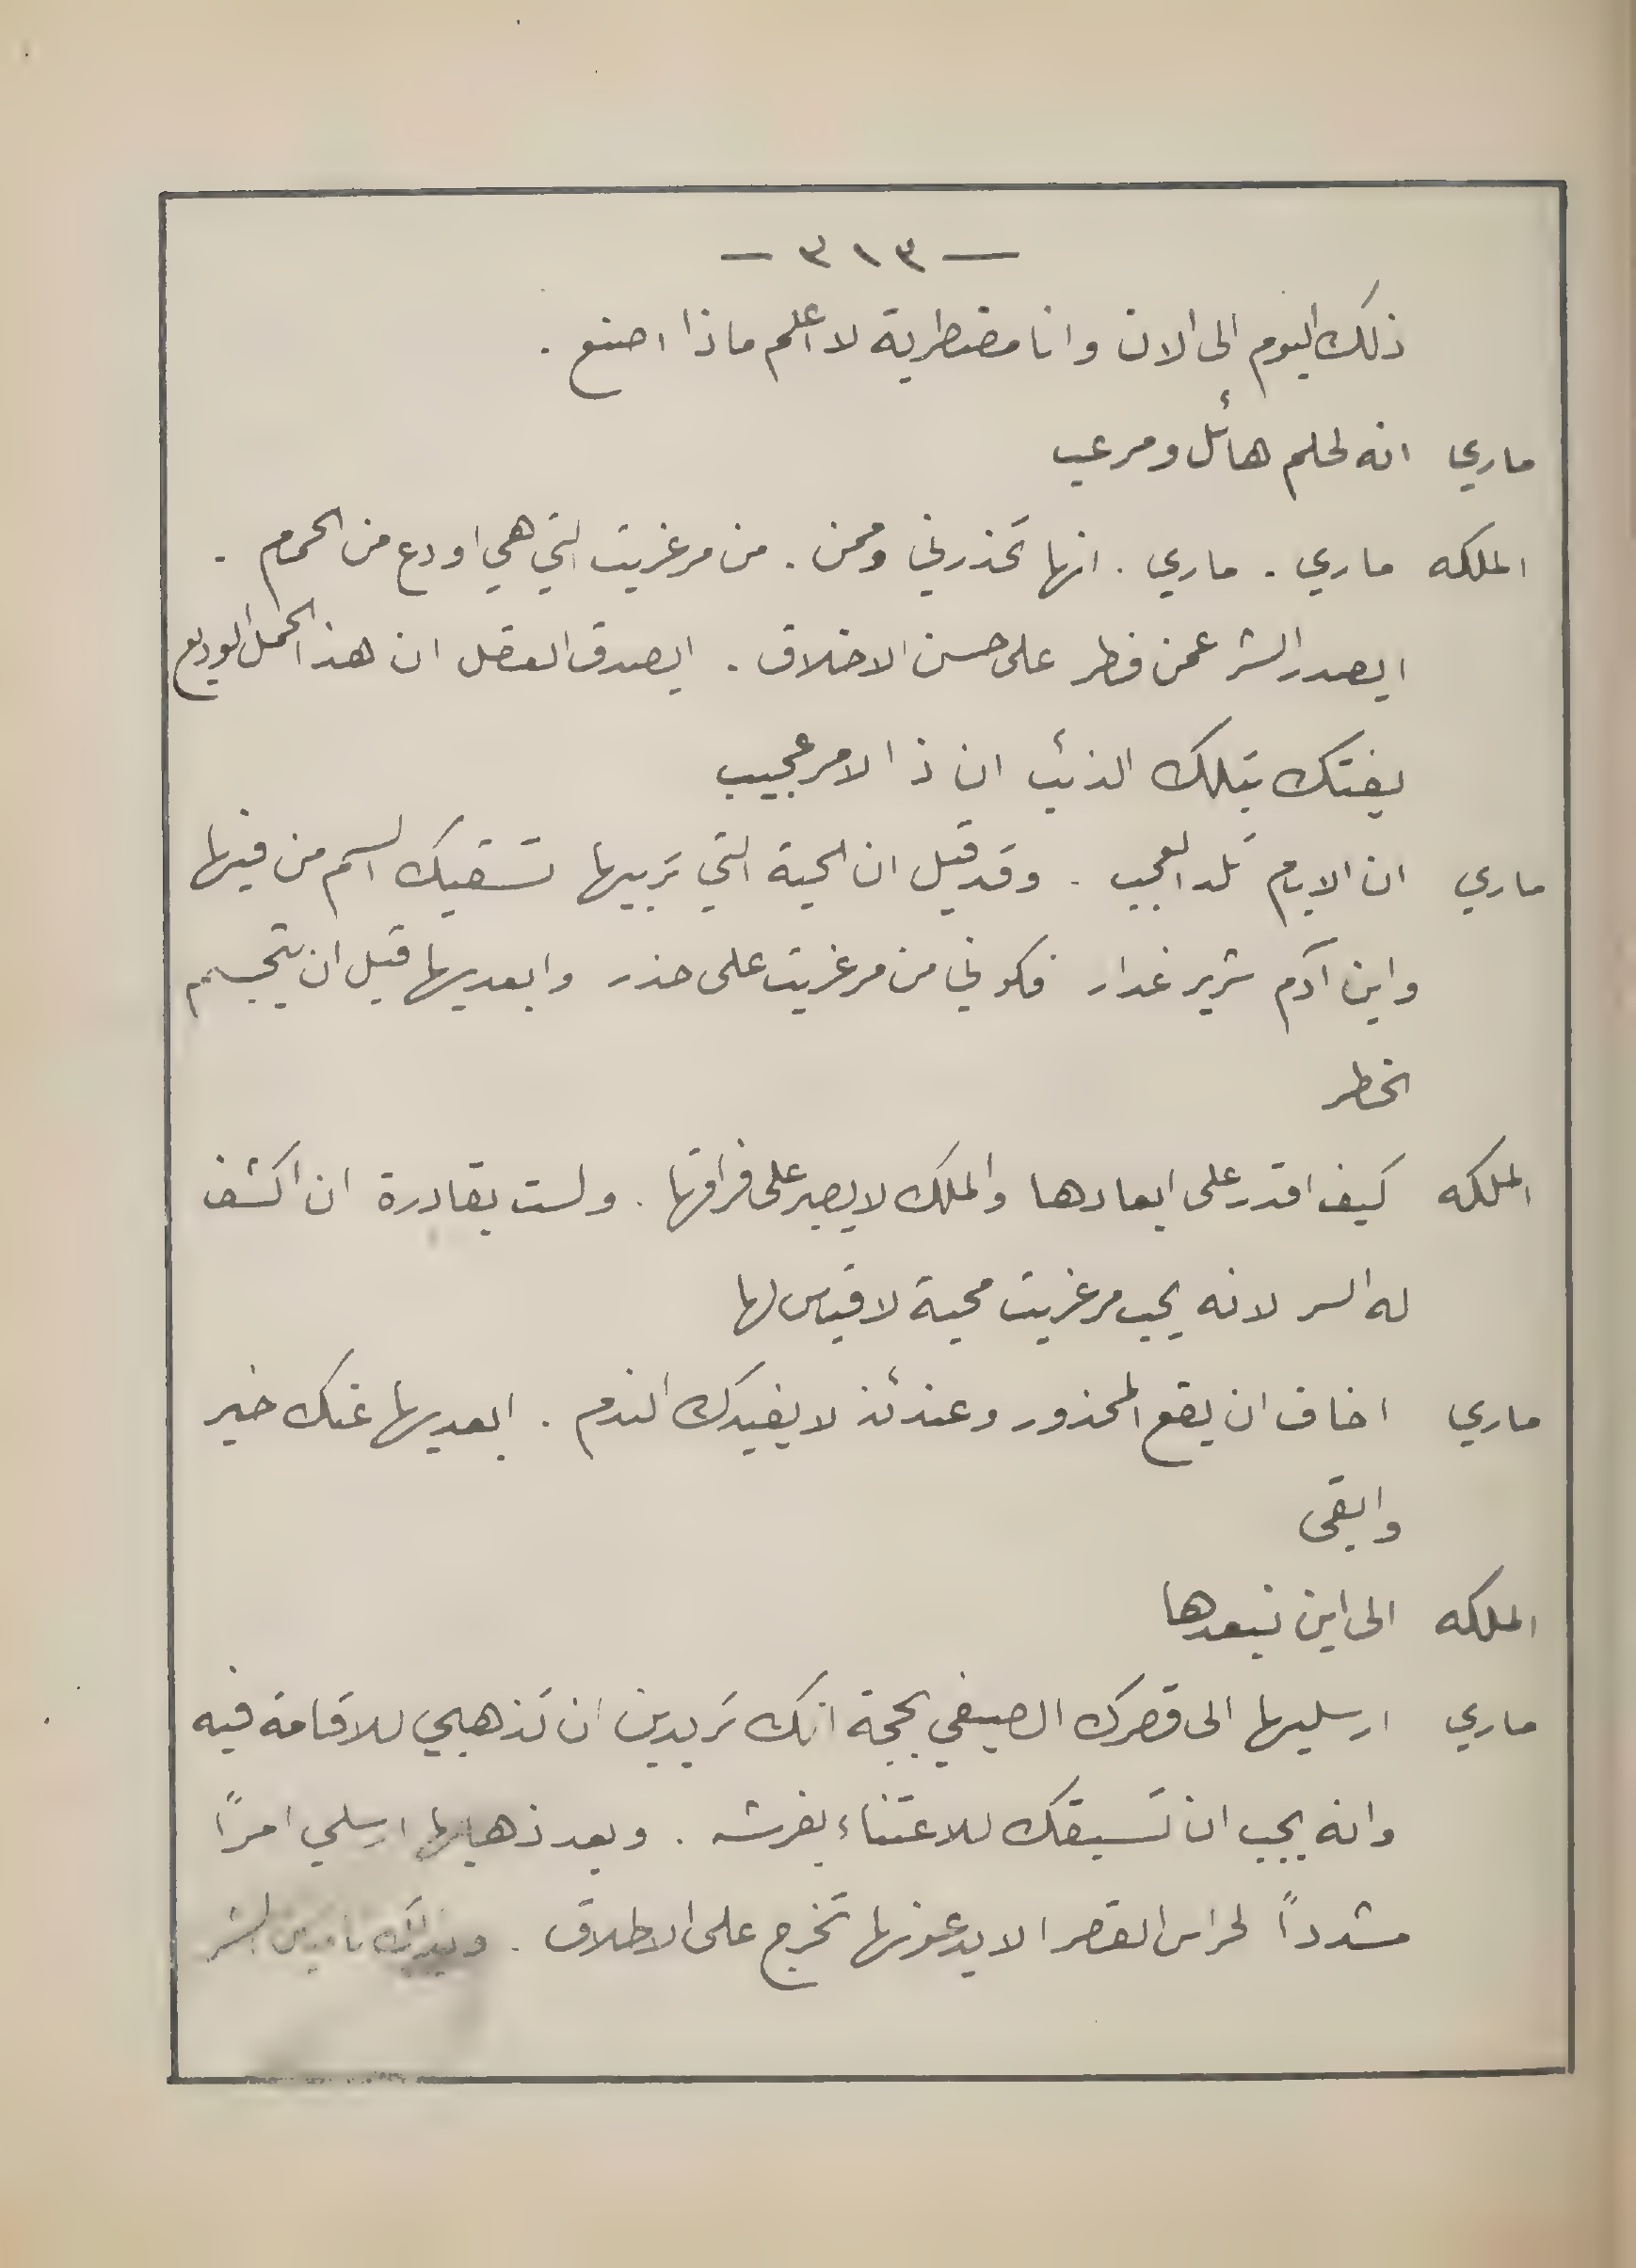 — ٣١٣ —
ذلك اليوم الى الان وانا مضطربة لا اعلم ماذا اصنع .
ماري انه لحلم هائل ومرعب
الملكه ماري . ماري . انها تحذرني وممن . من مرغريت التي هي اودع من الحمام .
ايصدر الشر عمن فطر على حسن الاخلاق . ايصدق العقل ان هذا الحمل الوديع
يفتك بتلك الذئب ان ذا لامر عجيب
ماري ان الايام تلد العجيب . وقد قيل ان الحية التي تربيها تسقيك السم من فيها
وابن آدم شرير غدار فكوني من مرغريت على حذر وابعديها قبل ان يتجسم
الخطر
الملكه كيف اقدر على ابعادها والملك لا يصبر على فراقها . ولست بقادرة ان اكشف
له السر لانه يحب مرغريت محبة لا قياس لها
ماري اخاف ان يقع المحذور وعندئذ لا يفيدك الندم . ابعديها عنك خير
وابقى
الملكه الى اين نبعدها
ماري ارسليها الى قصرك الصيفي بحجة انك تريدين ان تذهبي للاقامة فيه
وانه يجب ان تسبقك للاعتناء بفرشه . وبعد ذهابها ارسلي امراً
مشدداً لحراس القصر الا يدعونها تخرج على الاطلاق . وبذلك تأمنين الشر